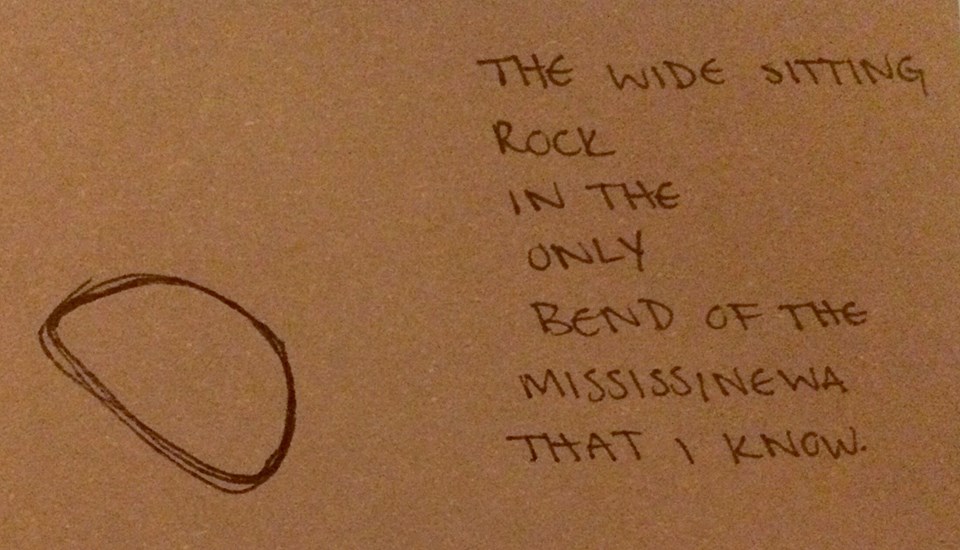 THE WIDE SITTING
ROCK
IN THE
ONLY
BEND OF THE
MISSISSINEWA
THAT I KNOW.